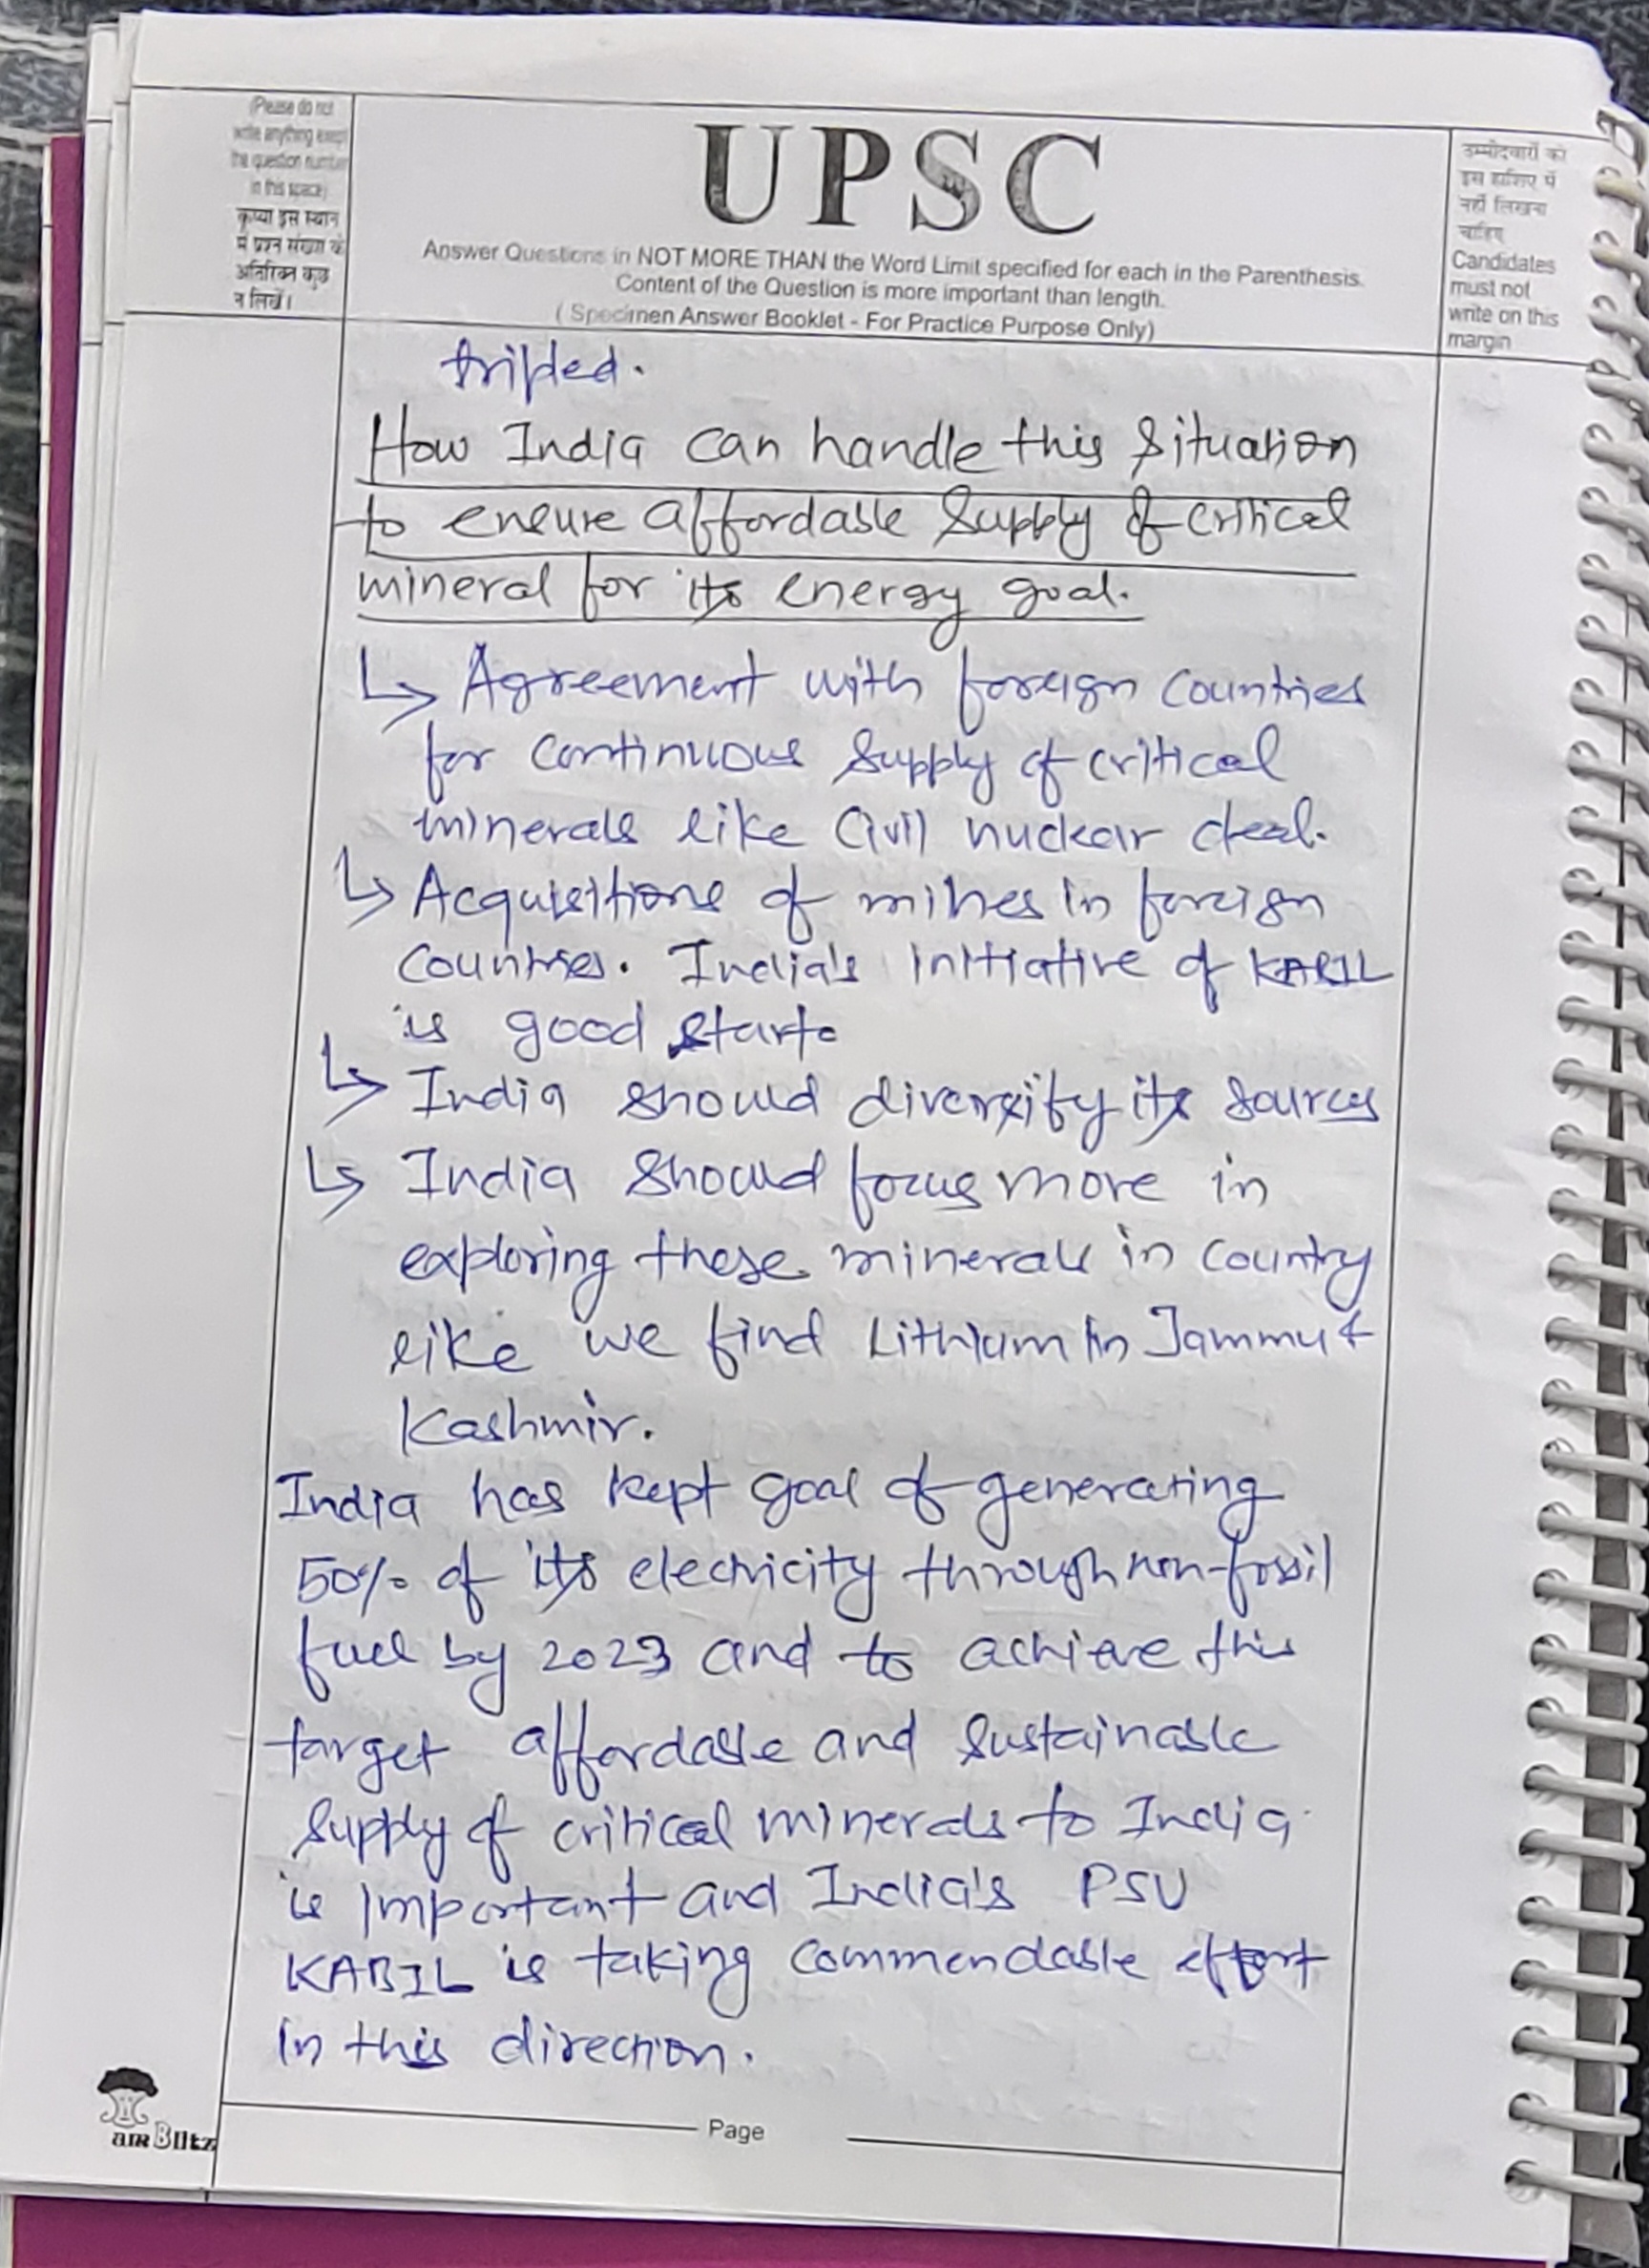 (Please do not
write anything except
the question number
in this space)
कृप्या इस स्थान
में प्रश्न संख्या के
अतिरिक्त कुछ
न लिखें।
UPSC
Answer Questions in NOT MORE THAN the Word Limit specified for each in the Parenthesis.
Content of the Question is more important than length.
( Specimen Answer Booklet - For Practice Purpose Only)
उम्मीदवारों को
इस हाशिए में
नहीं लिखना
चाहिए
Candidates
must not
write on this
margin
tripled.
How India can handle this situation
to ensure affordable supply of critical
mineral for its energy goal.
↳ Agreement with foreign countries
for continuous supply of critical
minerals like Civil nuclear deal.
↳ Acquisitions of mines in foreign
countries. India's initiative of KABIL
is good start.
↳ India should diversify its sources
↳ India should focus more in
exploring these minerals in country
like we find Lithium in Jammu &
Kashmir.
India has kept goal of generating
50% of its electricity through non-fossil
fuel by 2023 and to achieve this
target affordable and sustainable
supply of critical minerals to India
is important and India's PSU
KABIL is taking commendable effort
in this direction.
Page